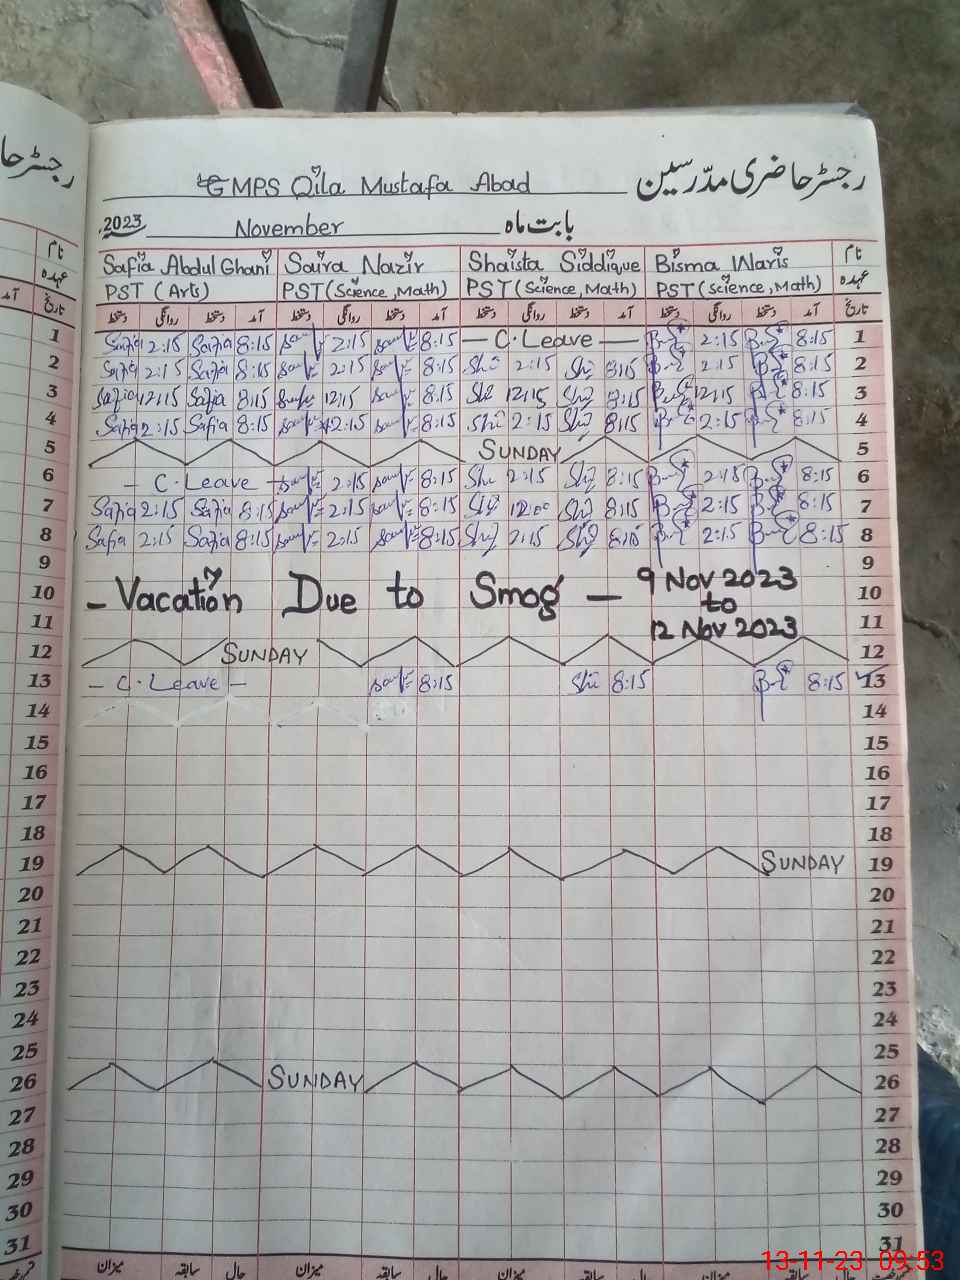 رجسٹر حاضری مدرسین GMPS Qila Mustafa Abad
بابت ماہ November 2023
نام Safia Abdul Ghani Saira Nazir Shaista Siddique Bisma Waris
عہدہ PST (Arts) PST (Science, Math) PST (Science, Math) PST (Science, Math)
تاریخ دستخط روانگی دستخط آمد دستخط روانگی دستخط آمد دستخط روانگی دستخط آمد دستخط روانگی دستخط آمد تاریخ
1 Safia 2:15 Safia 8:15 2:15 8:15 — C. Leave — 2:15 8:15 1
2 Safia 2:15 Safia 8:15 2:15 8:15 Shi 2:15 Shi 8:15 2:15 8:15 2
3 Safia 12:15 Safia 8:15 12:15 8:15 Shi 12:15 Shi 8:15 12:15 8:15 3
4 Safia 2:15 Safia 8:15 2:15 8:15 Shi 2:15 Shi 8:15 2:15 8:15 4
5 SUNDAY 5
6 — C. Leave — 2:15 8:15 Shi 2:15 Shi 8:15 8:15 6
7 Safia 2:15 Safia 8:15 2:15 8:15 Shi Shi 8:15 2:15 8:15 7
8 Safia 2:15 Safia 8:15 2:15 8:15 Shi 2:15 Shi 8:15 2:15 8:15 8
9 9
10 — Vacation Due to Smog — 9 Nov 2023 10
to
11 12 Nov 2023 11
12 SUNDAY 12
13 — C. Leave — 8:15 Shi 8:15 8:15 13
14 14
15 15
16 16
17 17
18 18
19 SUNDAY 19
20 20
21 21
22 22
23 23
24 24
25 25
26 SUNDAY 26
27 27
28 28
29 29
30 30
31 31
میزان سابقہ حال میزان سابقہ حال میزان سابقہ حال
13-11-23 09:53